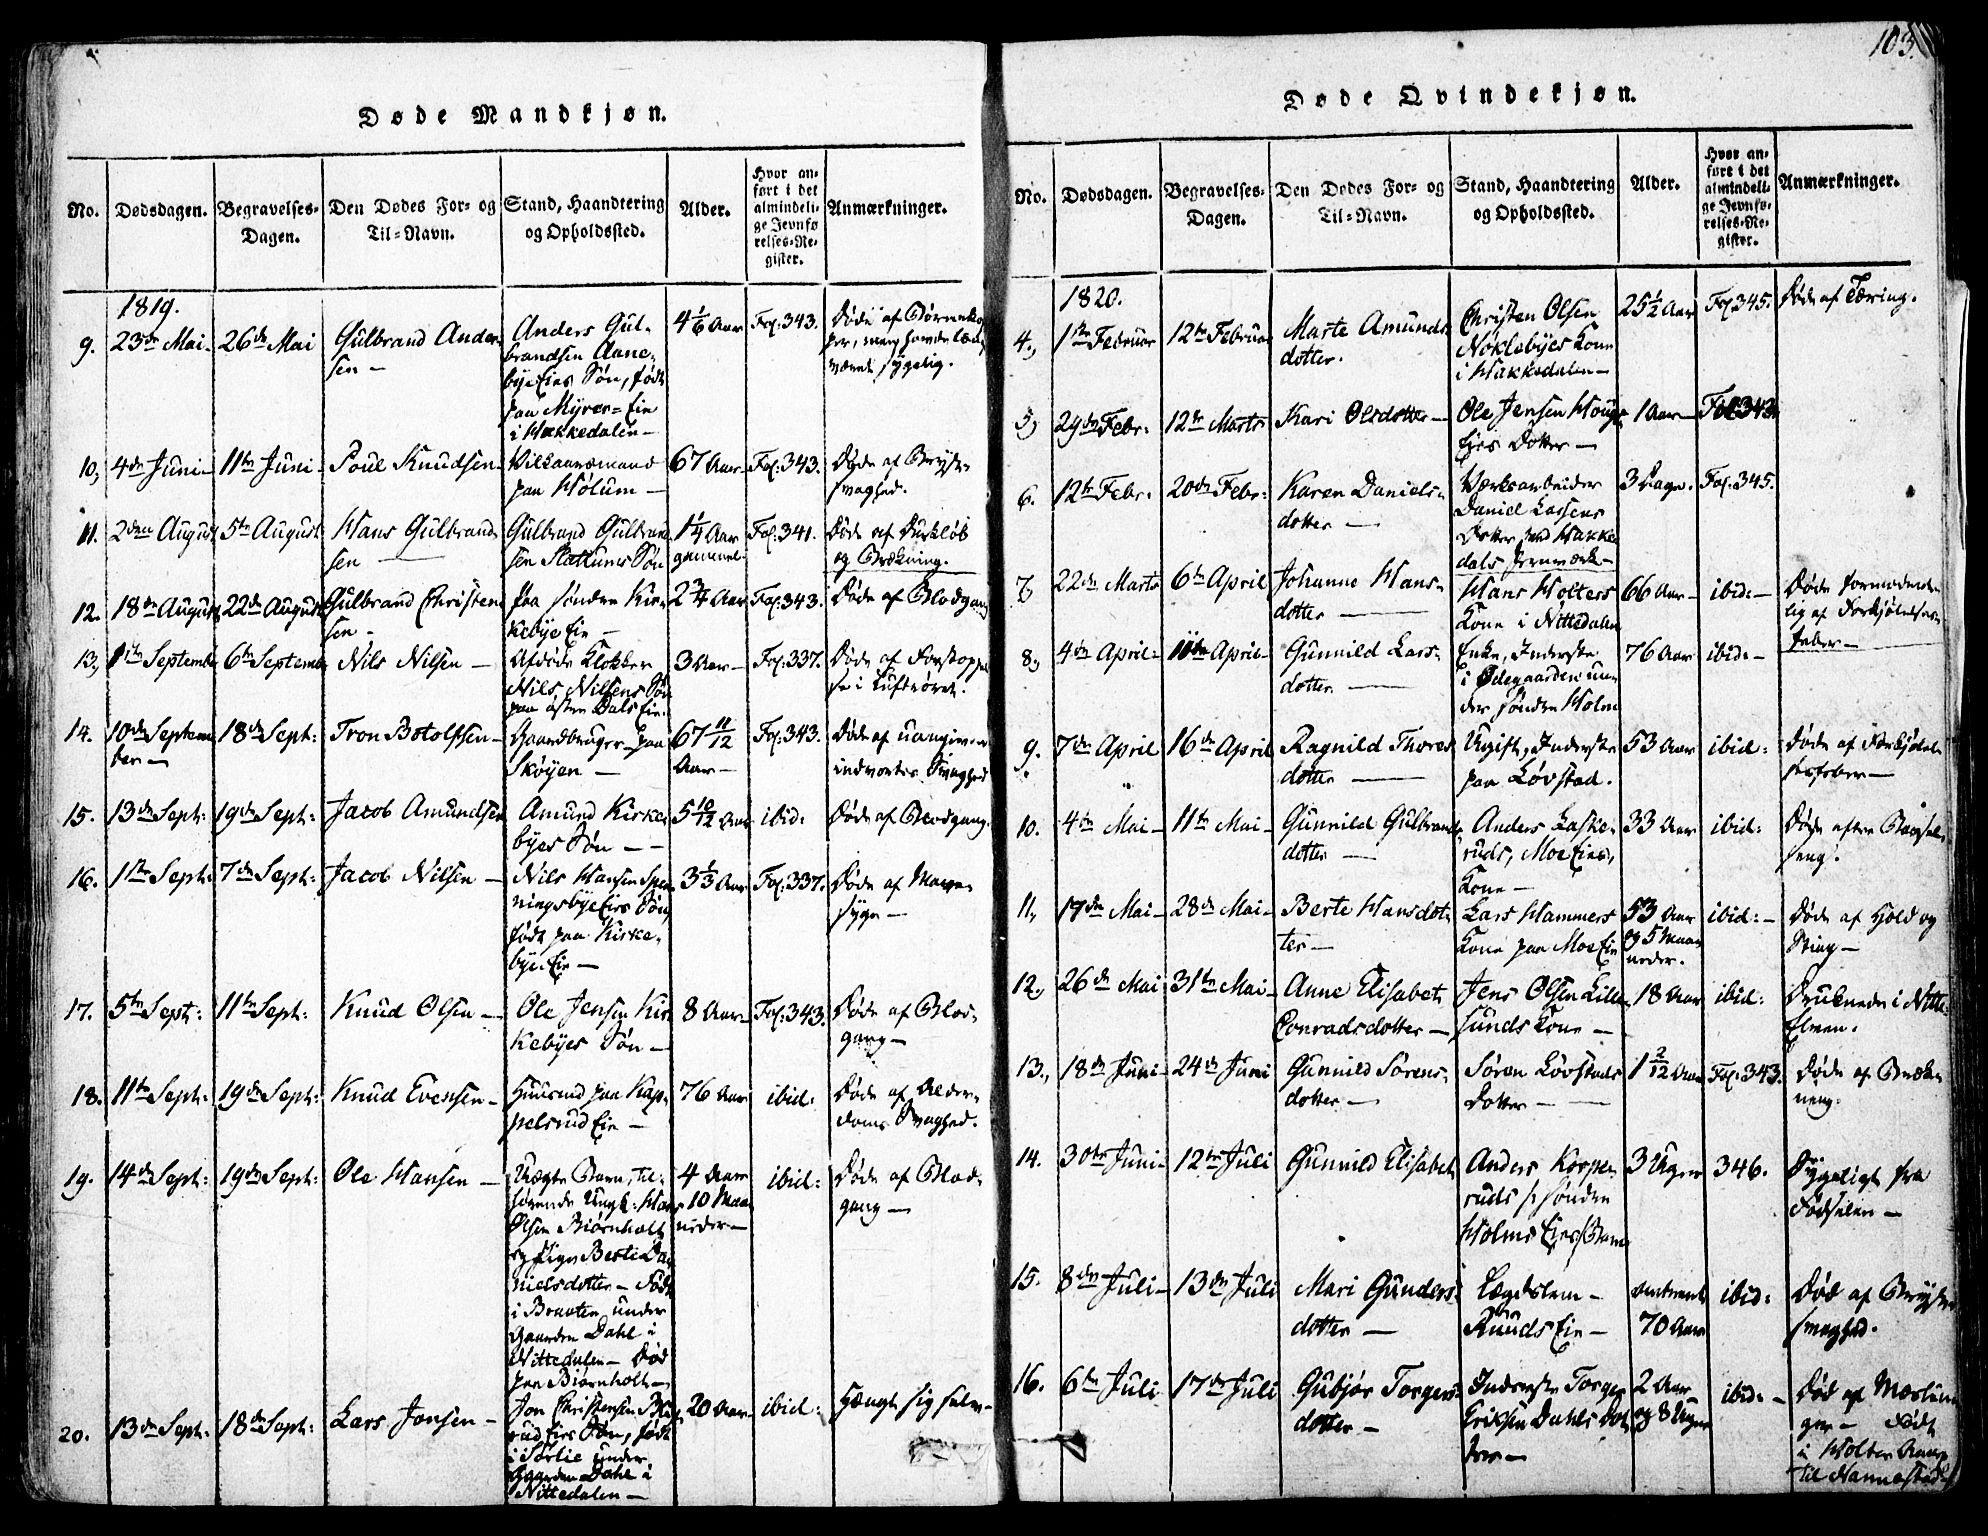 103.
Døde Mandkjøn.
No.
Dødsdagen.
Begravelses-
Dagen.
Den Dødes For- og
Til-Navn.
Stand, Haandtering
og Opholdssted.
Alder.
Hvor an-
ført i det
almindeli-
ge Jevnfø
relses-Re-
gister.
Anmærkninger.
1819.
9. 23de Mai 26de Mai Gulbrand Ander-
sen
Anders Gul-
brandsen Aane-
bye Eies Søn, født
paa Myrer-Eie
i Hakkedalen
4 1/6 Aar Fol. 343.
Døde af
været sygelig.
10, 4de Juni 11te Juni Poul Knudsen
Vilkaarsmand
paa Holum
67 Aar Fol. 343.
Døde af Bryst-
svaghed.
11. 2den August 5te August Hans Gulbrand-
sen
Gulbrand Gulbrand-
sen Slattums Søn
1 1/4 Aar
gammel
Fol. 341.
Døde af Durkløb
og Brækning.
12. 18de August 22de August Gulbrand Christen-
sen
paa søndre Kir-
kebye Eie
2 3/4 Aar Fol. 343. Døde af Blodgang
13, 1ste Septemb 6te Septemb Nils Nilsen
Afdøde Klokker
Nils Nilsens Søn
paa østre Dals Eie.
3 Aar Fol. 337.
Døde af Forstoppel-
se i Luftrøret.
14. 10de Septem-
ber
18de Sept: Tron Botolfsen
Gaardbruger paa
Skøyen
67 11/12
Aar
Fol. 343.
Døde af uangiven
indvortes Svaghed
15. 13de Sept: 19de Sept: Jacob Amundsen
Amund Kirke-
byes Søn
5 10/12 Aar ibid: Døde af Blodgang.
16. 1ste Sept: 7de Sept: Jacob Nilsen
Nils Hansen Spen-
ningsbye Eies Søn,
født paa Kirke-
bye Eie
3 1/3 Aar Fol. 337.
Døde af Mave-
syge
17. 5te Sept: 11te Sept: Knud Olsen
Ole Jensen Kir-
kebyes Søn
8 Aar Fol. 343.
Døde af Blod-
gang
18. 11te Sept: 19de Sept: Knud Evensen
Huusmd paa Kap-
pelsrud Eie
76 Aar ibid:
Døde af Alder-
doms Svaghed.
19. 14de Sept: 19de Sept: Ole Hansen
Uægte Barn, til-
hørende Ungk: Hans
Olsen Biørnholt
og Pige Berte Da-
nielsdotter Født
i Braaten under
Gaarden Dahl i
Nittedalen Død
paa Biørnholt
4 Aar
10 Maa-
neder
ibid:
Døde af Blod-
gang
20. 13de Sept: 18de Sept: Lars Jonsen
Jon Christensen
rud Eies Søn, født
i Sørlie under
Gaarden Dahl i
Nittedalen
20 Aar ibid: Hængt sig selv
Døde Qvindekjøn.
No.
Dødsdagen.
Begravelses-
Dagen.
Den Dødes For- og
Til-Navn.
Stand, Haandtering
og Opholdssted.
Alder.
Hvor an-
ført i det
almindeli-
ge Jevnfø-
relses-Re-
gister.
Anmærkninger.
1820.
4, 1ste Februar 12te Februar Marte Amunds-
dotter.
Christen Olsen
Nøklebyes Kone
i Hakkedalen
25 1/2 Aar Fol. 345. Døde af Tæring.
5, 29de Febr: 12te Marts Kari Olsdotter
Ole Jensen Houg-
Eies Dotter
1 Aar Fol. 343.
6. 12te Febr: 20de Febr: Karen Daniels-
dotter
Værksarbeider
Daniel Larsens
Dotter ved Hakke-
dals Jernværk
3 Dage. Fol. 345.
7, 22de Marts 6te April Johanne Hans-
dotter
Hans Holters
Kone i Nittedalen
66 Aar ibid:
Døde formodent-
lig af Forkjølelses-
feber
8, 4de April 11te April Gunnild Lars-
dotter
Enke, Inderste
i Ødegaarden un-
der søndre Holm
76 Aar ibid:
9. 7de April 16de April Ragnild Thores-
dotter
Ugift, Inderste
paa Løvstad.
53 Aar ibid:
Døde af Forkjølel-
sesfeber
10. 4de Mai 11te Mai Gunnild Gulbrands-
dotter
Anders Laske-
ruds, Moe Eies,
Kone
33 Aar ibid:
Døde efter Barsel-
seng.
11, 17de Mai 28de Mai Berte Hansdot-
ter
Lars Hammers
Kone paa Moe Eie
53 Aar
og 5 Maa-
neder.
ibid:
Døde af Hold og
Sting
12, 26de Mai 31te Mai Anne Elisabet
Conradsdotter
Jens Olsen Lille-
sunds Kone
18 Aar ibid:
Druknede i Nitte-
Elven.
13, 18de Juni 24de Juni Gunnild Sørens-
dotter
Søren Løvstads
Dotter
1 2/12 Aar Fol. 343.
Døde af Bræk-
ning.
14. 30te Juni 12te Juli Gunnild Elisabet
Anders Korpe-
ruds /: søndre
Holms Eies /: Barn
3 Uger 346.
Sygeligt fra
Fødselen
15. 8de Juli 13de Juli Mari Gunders-
dotter
Lægdslem
Ruuds Eie
omtrent
70 Aar
ibid:
Død af Bryst-
svaghed.
16. 6te Juli 17de Juli Gubjør Torgers-
dotter
Inderste Torger
Eriksen Dahls Dot-
ter
2 Aar
og 8 Uger
ibid:
Død af Mæslin-
ger Født
i Holter Annex
til Nannestad